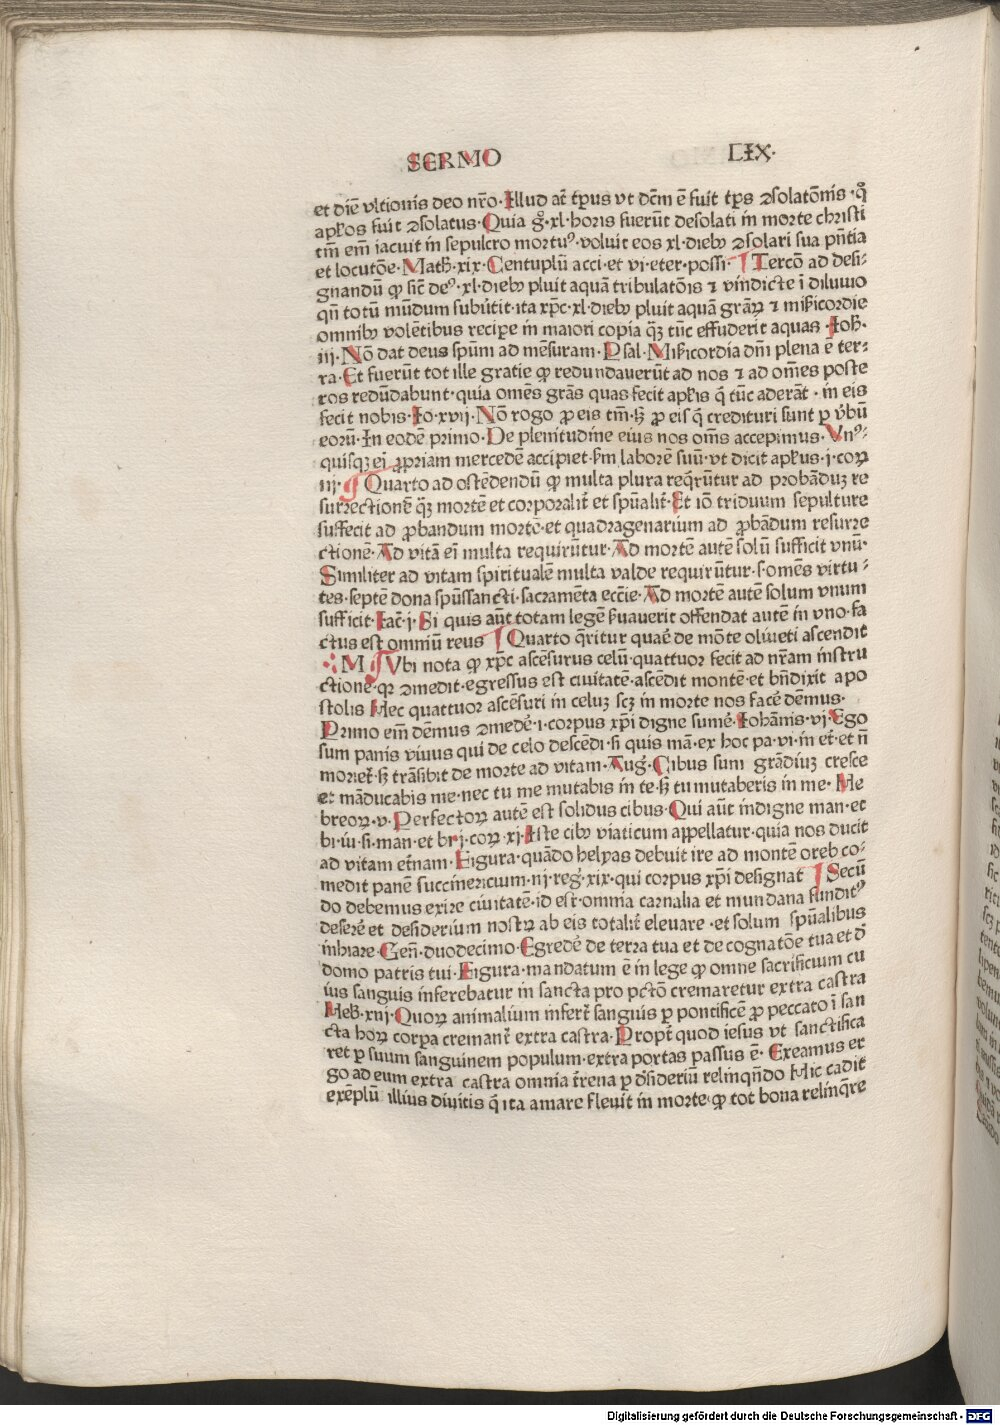 SERMO LIX·
et diē vltionis deo nr̄o·Illud at̄ tp̄us vt dc̄m ē fuit tp̄s ꝯsolatōnis·qͦ
apl̄os fuit ꝯsolatus·Quia gͦ·xl·horis fuerūt desolati in morte christi
tm̄ em̄ iacuit in sepulcro mortuꝰ·voluit eos xl·diebꝰ ꝯsolari sua pn̄tia
et locutōe·Math̄·xix·Centuplū acci·et vi·eter·possi· ¶ Tercō ad desi⸗
gnandū ꝙ sic̄ deꝰ·xl·diebꝰ pluit aquā tribulatōis ⁊ vindicte ī diluuio
qn̄ totū mūdum subūtit·ita xp̄c·xl·diebꝰ pluit aquā grāꝝ ⁊ mīẜicordie
omnibꝰ volētibus recipe in maiori copia qꝫ tūc effuderit aquas·Joh̄·
iij·Nō dat deus spūm ad mēsuram·Psal·Mīẜicordia dn̄i plena ē ter⸗
ra·Et fuerūt tot ille gratie ꝙ redundauerūt ad nos ⁊ ad om̄es poste
ros redūdabunt·quia omēs grās quas fecit apl̄is q̄ tūc aderāt·in eis
fecit nobis·Jo·xvij·Nō rogo ꝓ eis tm̄·sꝫ ꝓ eis q̄ credituri sunt ꝑ v̄bū
eorū·In eodē primo·De plenitudine eius nos om̄s accepimus·Vnꝰ⸗
quisqꝫ ei ꝓpriam mercedē accipiet·ẜm laborē suū·vt dicit apl̄us·j·coꝝ
iij· ¶ Quarto ad ostēdendū ꝙ multa plura req̄rūtur ad probādūꝫ re
surrectionē q̄ꝫ mortē et corporalit̄ et spūalit̄·Et iō triduum sepulture
suffecit ad ꝓbandum mortē·et quadragenarium ad ꝓbādum resurre
ctionē·Ad vitā eī multa requirūtur·Ad mortē autē solū sufficit vnū·
Similiter ad vitam spiritualē multa valde requirūtur·s·omēs virtu⸗
tes·septē dona spūssancti·sacramēta ecc̄ie·Ad mortē autē solum vnum
sufficit·Jac̄·j·Si quis aūt totam legē ẜuauerit offendat autē in vno·fa
ctus est omniū reus ¶ Quarto q̄ritur quaē de mōte oliueti ascendit
M ¶ Vbi nota ꝙ xp̄c ascēsurus celū·quattuor fecit ad nr̄am instru
ctionē·qꝛ ꝯmedit·egressus est ciuitatē·ascēdit montē·et bn̄dixit apo
stolis Hec quattuor ascēsuri in celuꝫ scꝫ in morte nos facē dēmus·
Primo em̄ dēmus ꝯmedē·i·corpus xp̄i digne sumē·Johānis·vj·Ego
sum panis viuus qui de celo descēdi·si quis mā·ex hoc pa·vi·in et̄·et n̄
moriet̄·sꝫ trāsibit de morte ad vitam·Auḡ·Cibus sum grādiuꝫ cresce
et māducabis me·nec tu me mutabis in te·sꝫ tu mutaberis in me·He
breoꝝ·v·Perfectoꝝ autē est solidus cibus·Qui aūt indigne man·et
bi·iu·si·man·et br j·coꝝ·xj·Iste cibꝰ viaticum appellatur·quia nos ducit
ad vitam et̄nam·Figura·quādo helyas debuit ire ad montē oreb co⸗
medit panē succinericium·iij·reḡ·xix·qui corpus xp̄i designat ¶ Secū
do debemus exire ciuitatē·id est·omnia carnalia et mundana funditꝰ
deserē et desiderium nostꝝ ab eis totalit̄ eleuare·et solum spūalibus
inhiare·Gen̄·duodecimo·Egredē de terra tua et de cognatōe tua et d̄
domo patris tui·Figura·mandatum ē in lege ꝙ omne sacrificium cu
ius sanguis inferebatur in sancta pro pctō cremaretur extra castra
Heb̄·xiij·Quoꝝ animalium infert̄ sanguis ꝑ pontificē ꝓ peccato ī san
cta hoꝝ corpa cremant̄ extra castra·Propt̄ quod iesus vt sanctifica
ret ꝑ suum sanguinem populum·extra portas passus ē·Exeamus er
go ad eum extra castra omnia t̄rena ꝑ dſideriū relinqn̄do Hic cadit
exēplū illius diuitis q̄ ita amare fleuit in morte·ꝙ tot bona relinq̄re
Digitalisierung gefördert durch die Deutsche Forschungsgemeinschaft - DFG